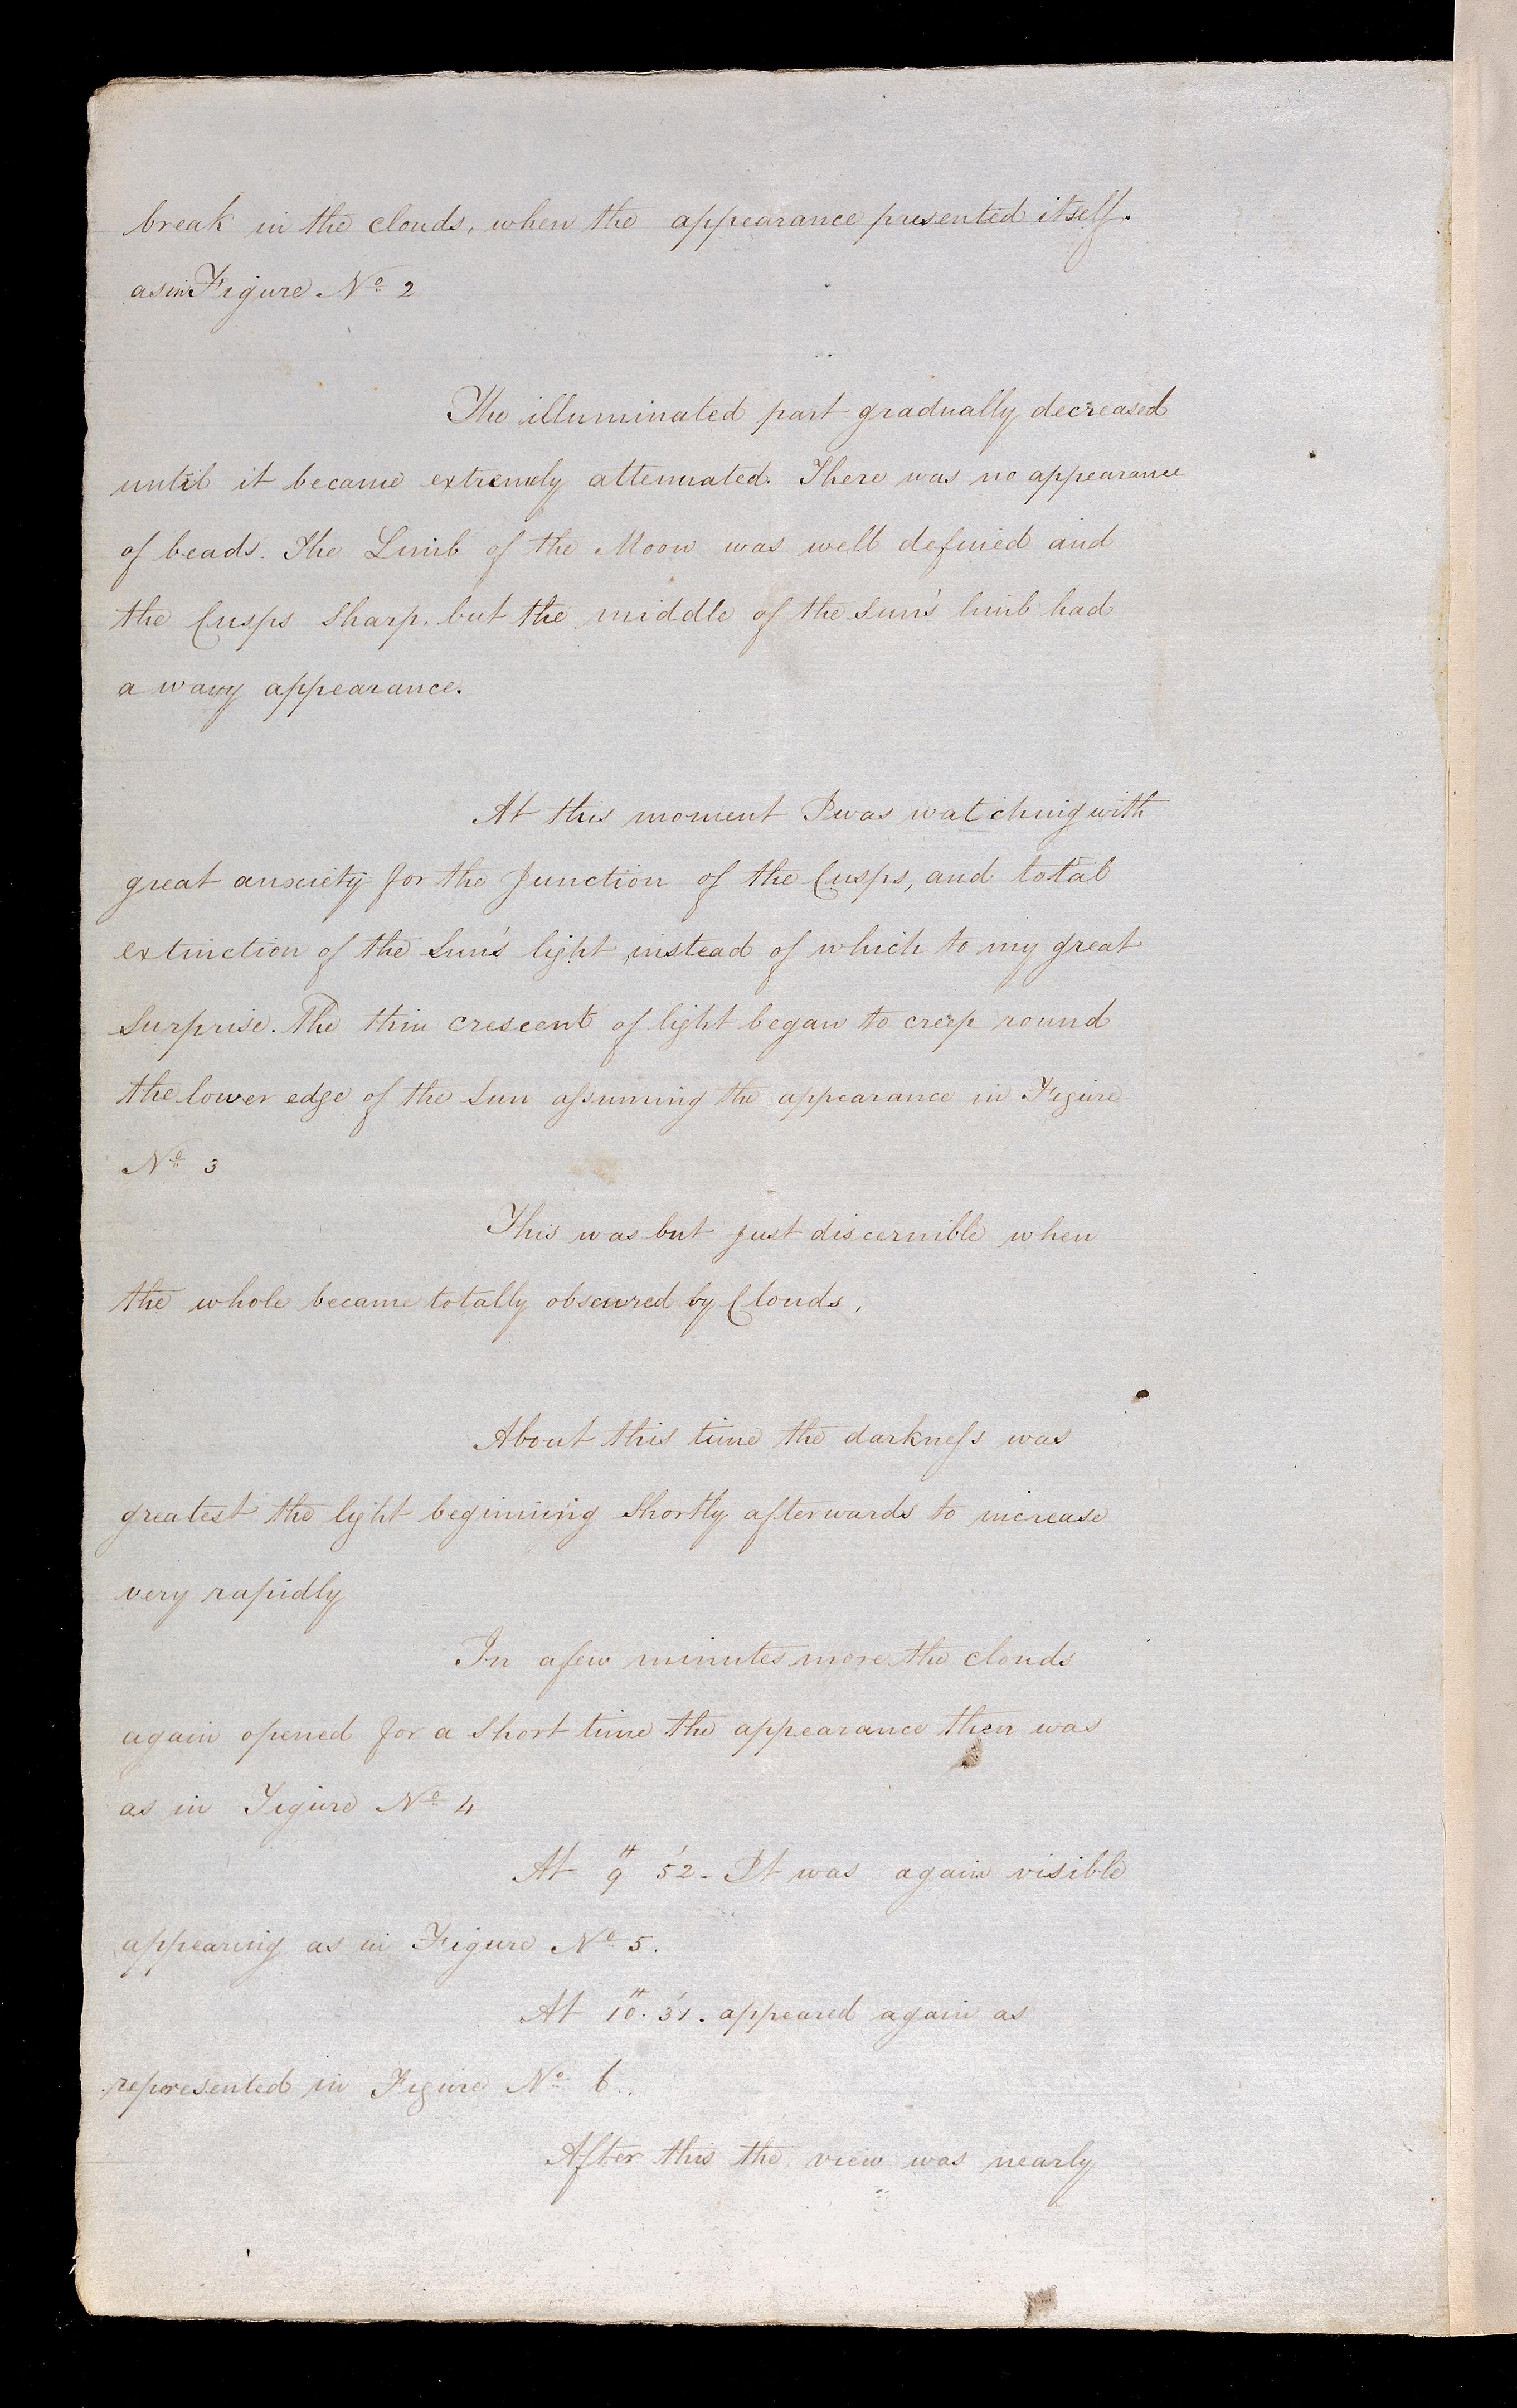 break in the clouds, when the appearance presented itself.
as in Figure No 2
The illuminated part gradually decreased
until it became extremely attenuated. There was no appearance
of beads. The Limb of the Moon was well defined and
the Cusps Sharp, but the middle of the Sun's limb had
a wavy appearance.
At this moment I was watching with
great anxiety for the Junction of the Cusps, and total
extinction of the Sun's light instead of which to my great
Surprise. The thin crescent of light began to creep round
the lower edge of the Sun assuming the appearance in Figure
No 3
This was but just discernible when
the whole became totally obscured by Clouds,
About this time the darkness was
greatest the light beginning Shortly afterwards to increase
very rapidly
In a few minutes more the clouds
again opened for a Short time the appearance then was
as in Figure No 4
At 9H 52' - It was again visible
appearing as in Figure No 5.
At 10H. 31'. appeared again as
represented in Figure No 6.
After this the view was nearly